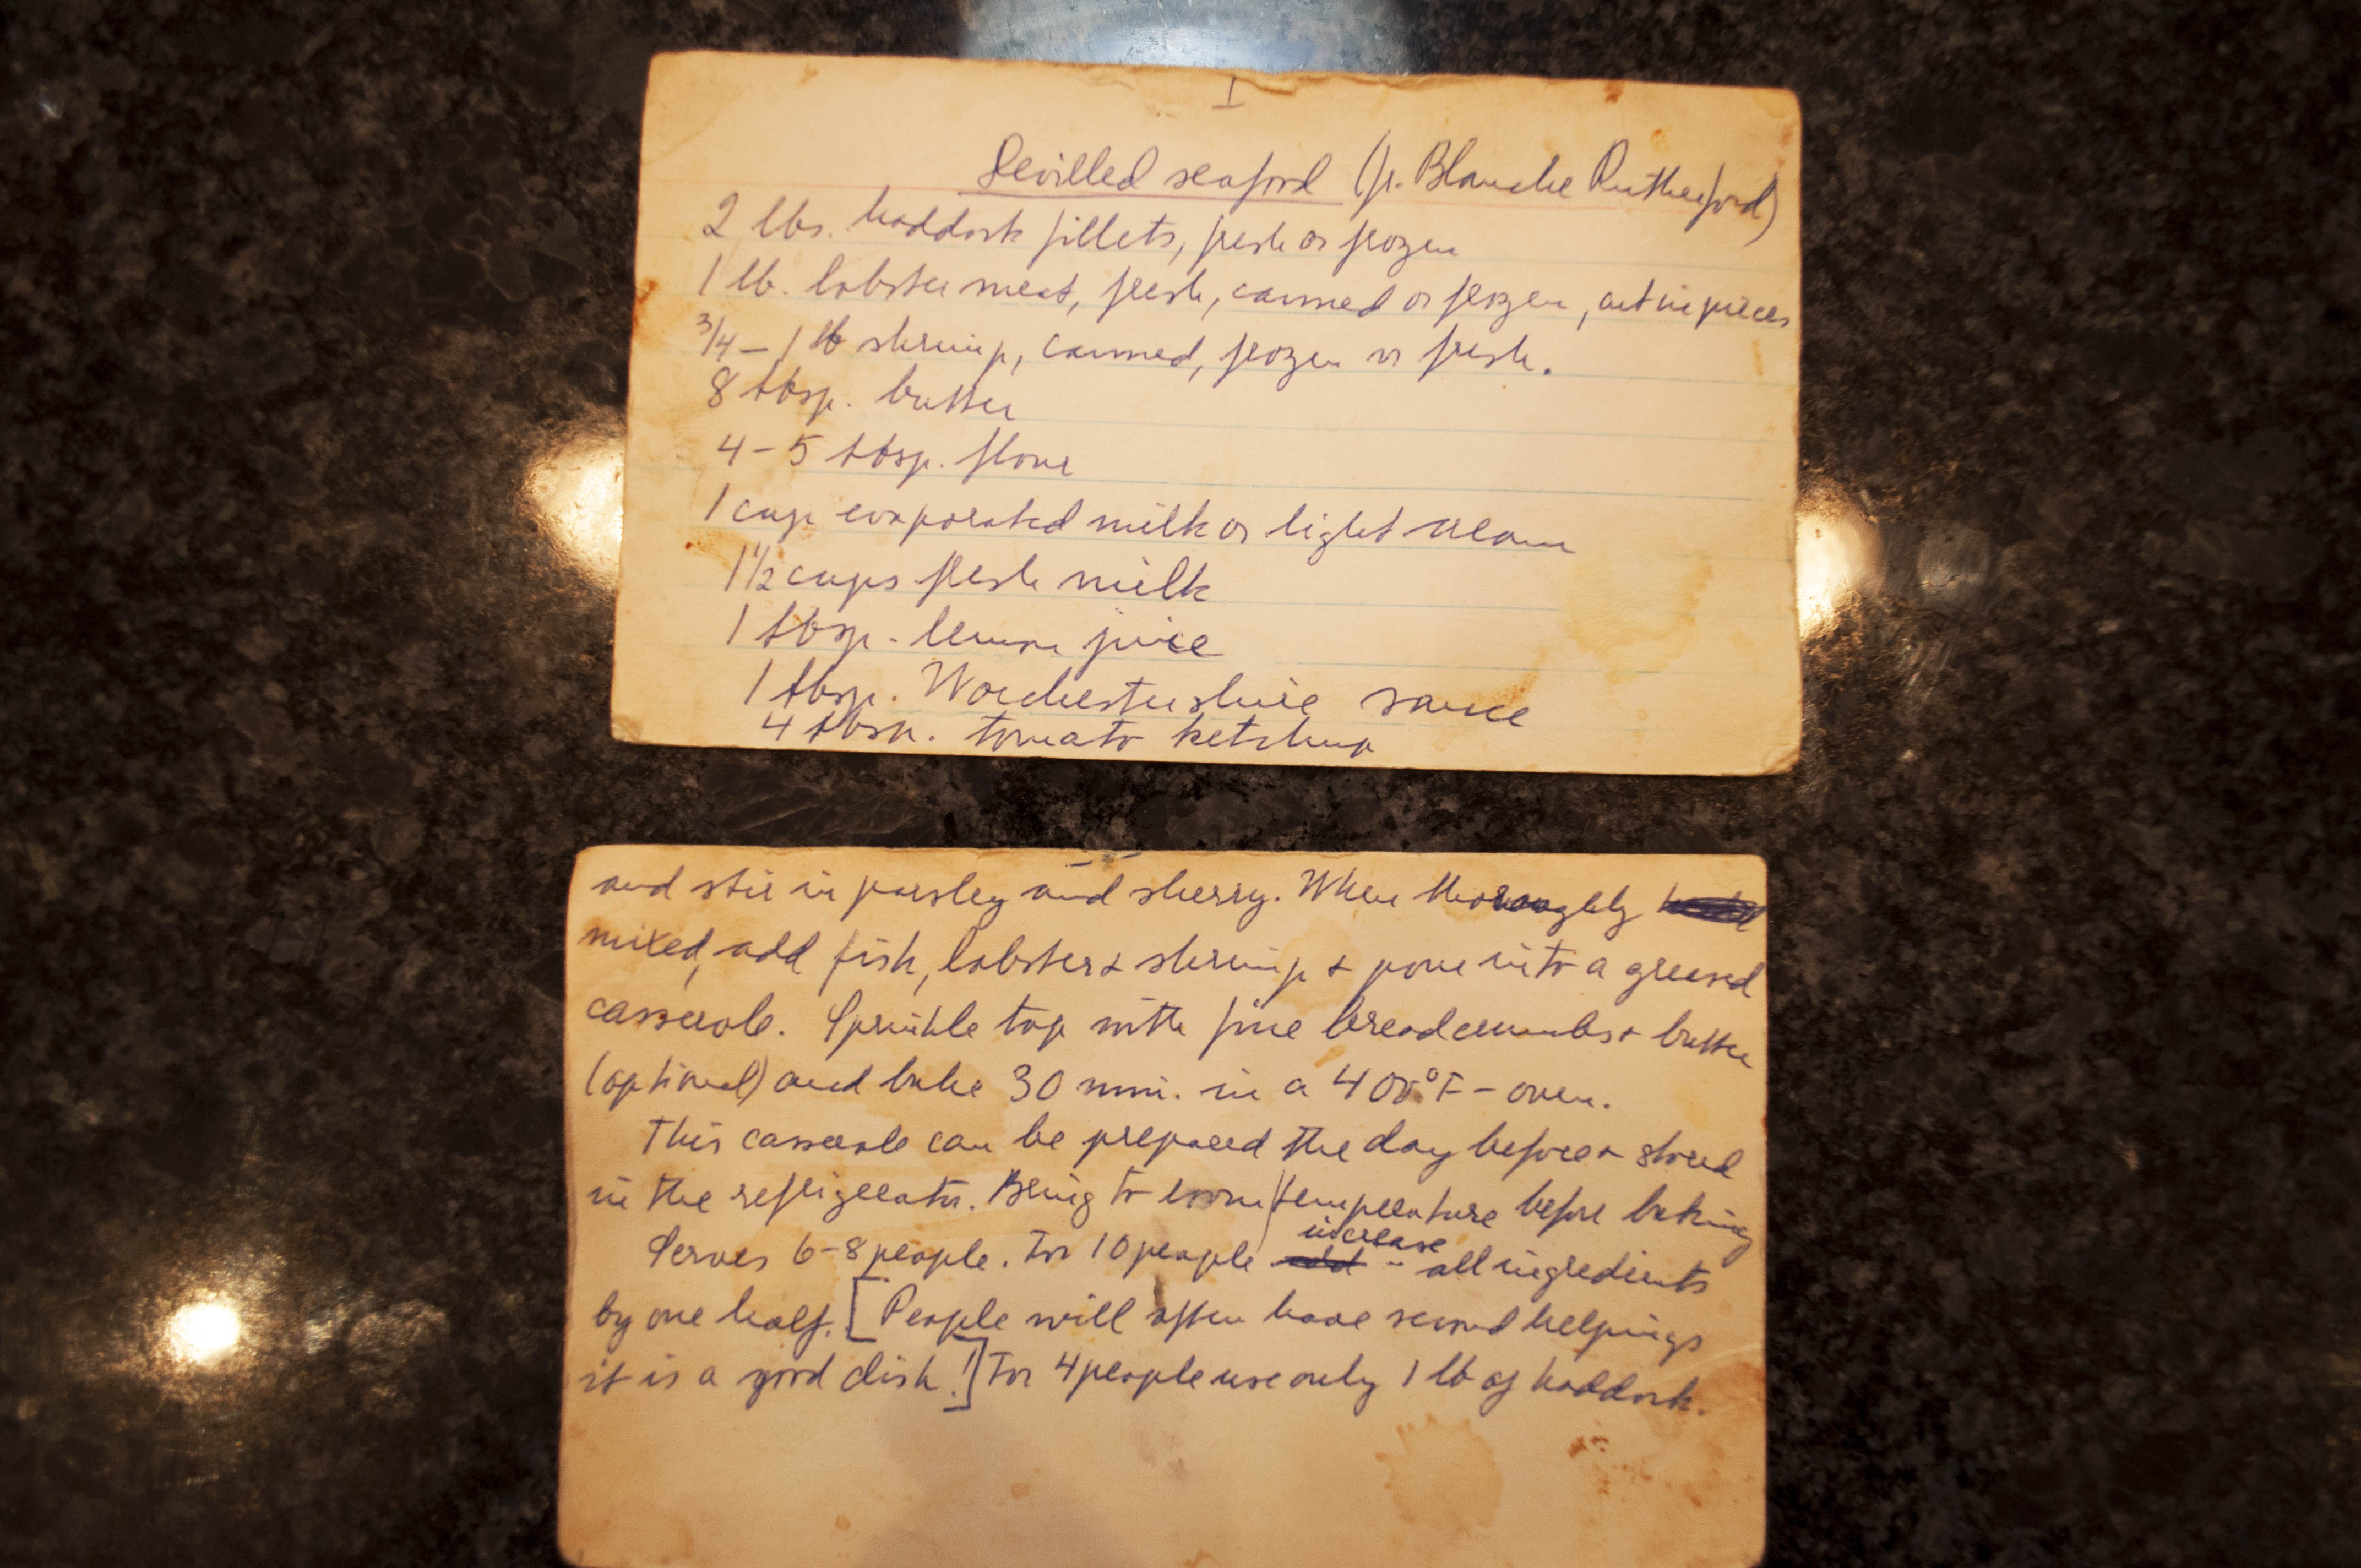 I
Devilled seafood (fr. Blanche Rutherford)
2 lbs. haddock fillets, fresh or frozen
1 lb. lobster meat, fresh, canned or frozen, cut in pieces
3/4 - 1 lb shrimp, canned, frozen or fresh.
8 tbsp. butter
4 - 5 tbsp. flour
1 cup evaporated milk or light cream
1 1/2 cups fresh milk
1 tbsp. lemon juice
1 tbsp. Worchestershire sauce
4 tbsp. tomato ketchup
and stir in parsley and sherry. When thoroughly
mixed, add fish, lobster & shrimp & pour into a greased
casserole. Sprinkle top with fine breadcrumbs & butter
(optional) and bake 30 min. in a 400°F - oven.
This casserole can be prepared the day before & stored
in the refrigerator. Bring to room temperature before baking
Serves 6-8 people. For 10 people increase all ingredients
by one half. [People will often have second helpings
it is a good dish!] For 4 people use only 1 lb of haddock.